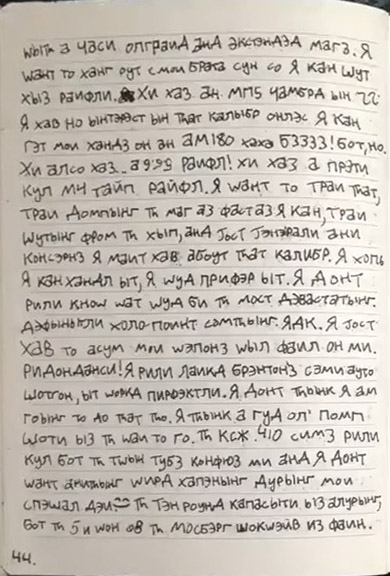 wыth а часи опграид анд экстэндэд магз. Я
want то ханг оут с мои брата сун со Я кан шут
хыз раифли. Хи хаз ан МП5 чамбрд ын 22
Я хав но ынтэрэст ын that калыбр онлэс Я кан
гэт мои хандз он ан ам180 хаха БЗЗЗЗ! бот, но.
Хи алсо хаз раифл! хи хаз а прэти
кул тайп райфл. Я want то траи that,
траи домпынг th маг аз фаст аз Я кан, траи
шутынг фром th хып, анд јост јэнэрали ани
консэрнз Я маит хав абоут that калибр. Я хопь
Я кан хандл ыт, Я wуд прифэр ыт. Я донт
рили know wат wуд би th мост дэвастатынг.
Дэфыныtли холо поинт сомthынг. ЯДК. Я јост
хав то асум мои wэпонз wыл фаил он ми.
Ридонданси! Я рили лаикд брэнтонз сэми ауто
шотгон, ыт wоркд пирфэктли. Я донт thынк Я ам
гоынг то до that thо. Я thынк а гуд ол' помп
шоти ыз th wаи то го. Th КСЖ 410 симз рили
кул бот th тwын тубз конфюз ми анд Я донт
want аниthынг wирд хапэнынг дурынг мои
спэшал дэи Th тэн роунд капасыти ыз алурынг,
бот th 5 и wон ов th мосбэрг шокwэйв из фаин.
44.